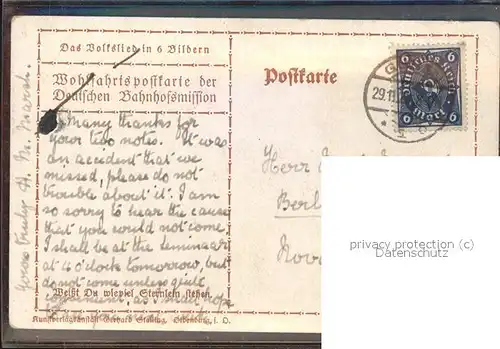 Das Volkslied in 6 Bildern
Wohlfahrtspostkarte der
Deutschen Bahnhofsmission
Postkarte
Deutsches Reich
6 6
6 Mark 6
29.11.
Many thanks for
your two notes. It was
an accident that we
missed, please do not
trouble about it. I am
so sorry to hear the cause
that you would not come.
I shall be at the seminar
at 4 o'clock tomorrow, but
do not come unless quite
convenient, as I shall hope
you
Yours truly H. M. Marsh.
Weißt Du wieviel Sternlein stehen
Kunstverlagsanstalt Gerhard Stalling, Oldenburg i. O.
Herr
Berl
privacy protection (c)
Datenschutz